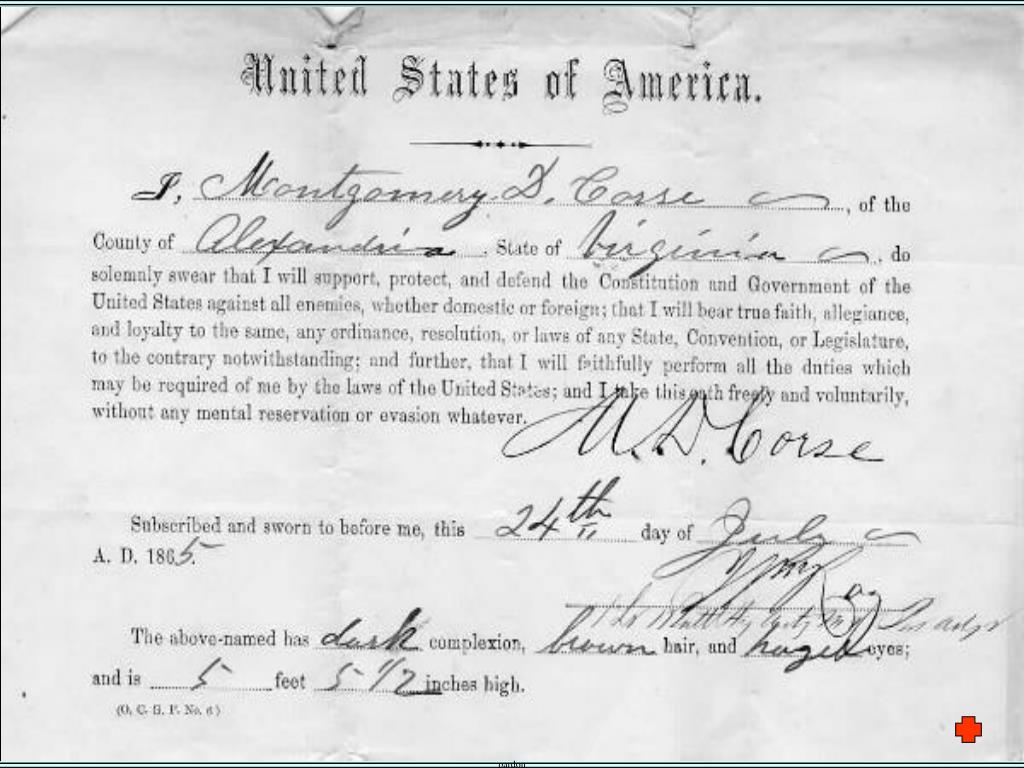 United States of America.
I, Montgomery D. Corse, of the
County of Alexandria. State of Virginia, do
solemnly swear that I will support, protect, and defend the Constitution and Government of the
United States against all enemies, whether domestic or foreign; that I will bear true faith, allegiance,
and loyalty to the same, any ordinance, resolution, or laws of any State, Convention, or Legislature,
to the contrary notwithstanding; and further, that I will faithfully perform all the duties which
may be required of me by the laws of the United States; and I take this oath freely and voluntarily,
without any mental reservation or evasion whatever.
M. D. Corse
Subscribed and sworn to before me, this 24th day of July
A. D. 1865.
The above-named has dark complexion, brown hair, and hazel eyes;
and is 5 feet 5 1/2 inches high.
(O. C. S. P. No. 6)
pardon